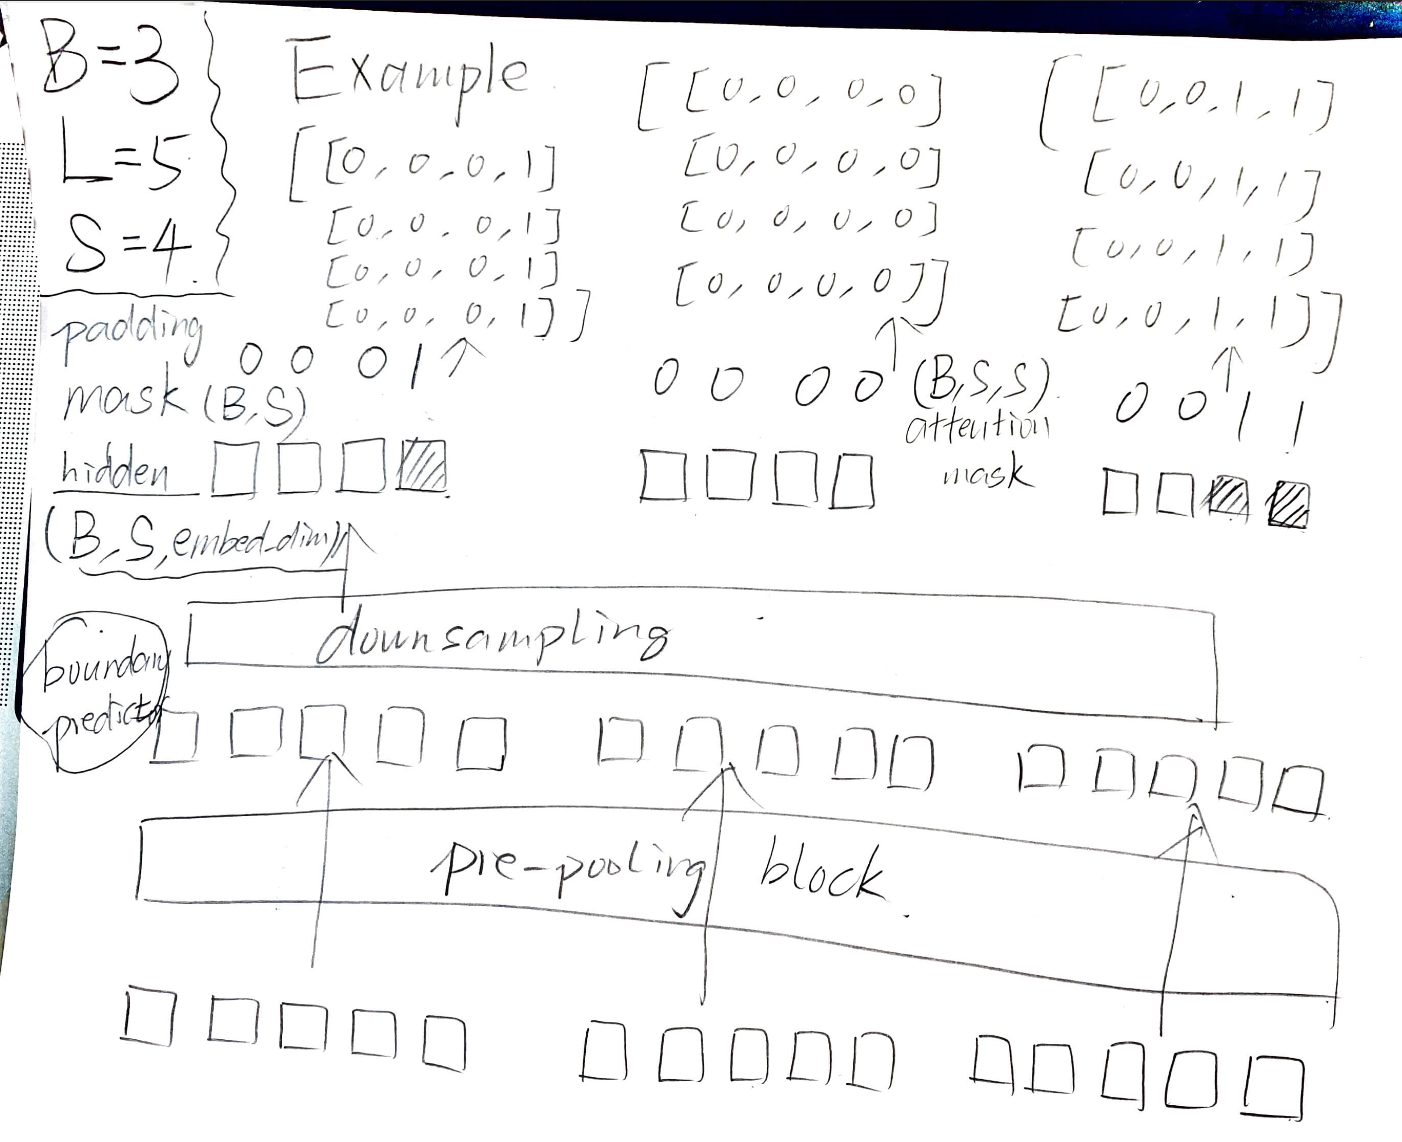 B=3
L=5
S=4
Example
[[0,0,0,1]
[0,0,0,1]
[0,0,0,1]
[0,0,0,1]]
[[0,0,0,0]
[0,0,0,0]
[0,0,0,0]
[0,0,0,0]]
[[0,0,1,1]
[0,0,1,1]
[0,0,1,1]
[0,0,1,1]]
padding
mask (B,S)
0 0 0 1
0 0 0 0
(B,S,S)
attention
mask
0 0 1 1
hidden
(B,S,embed_dim)
downsampling
boundary
predictor
pre-pooling block